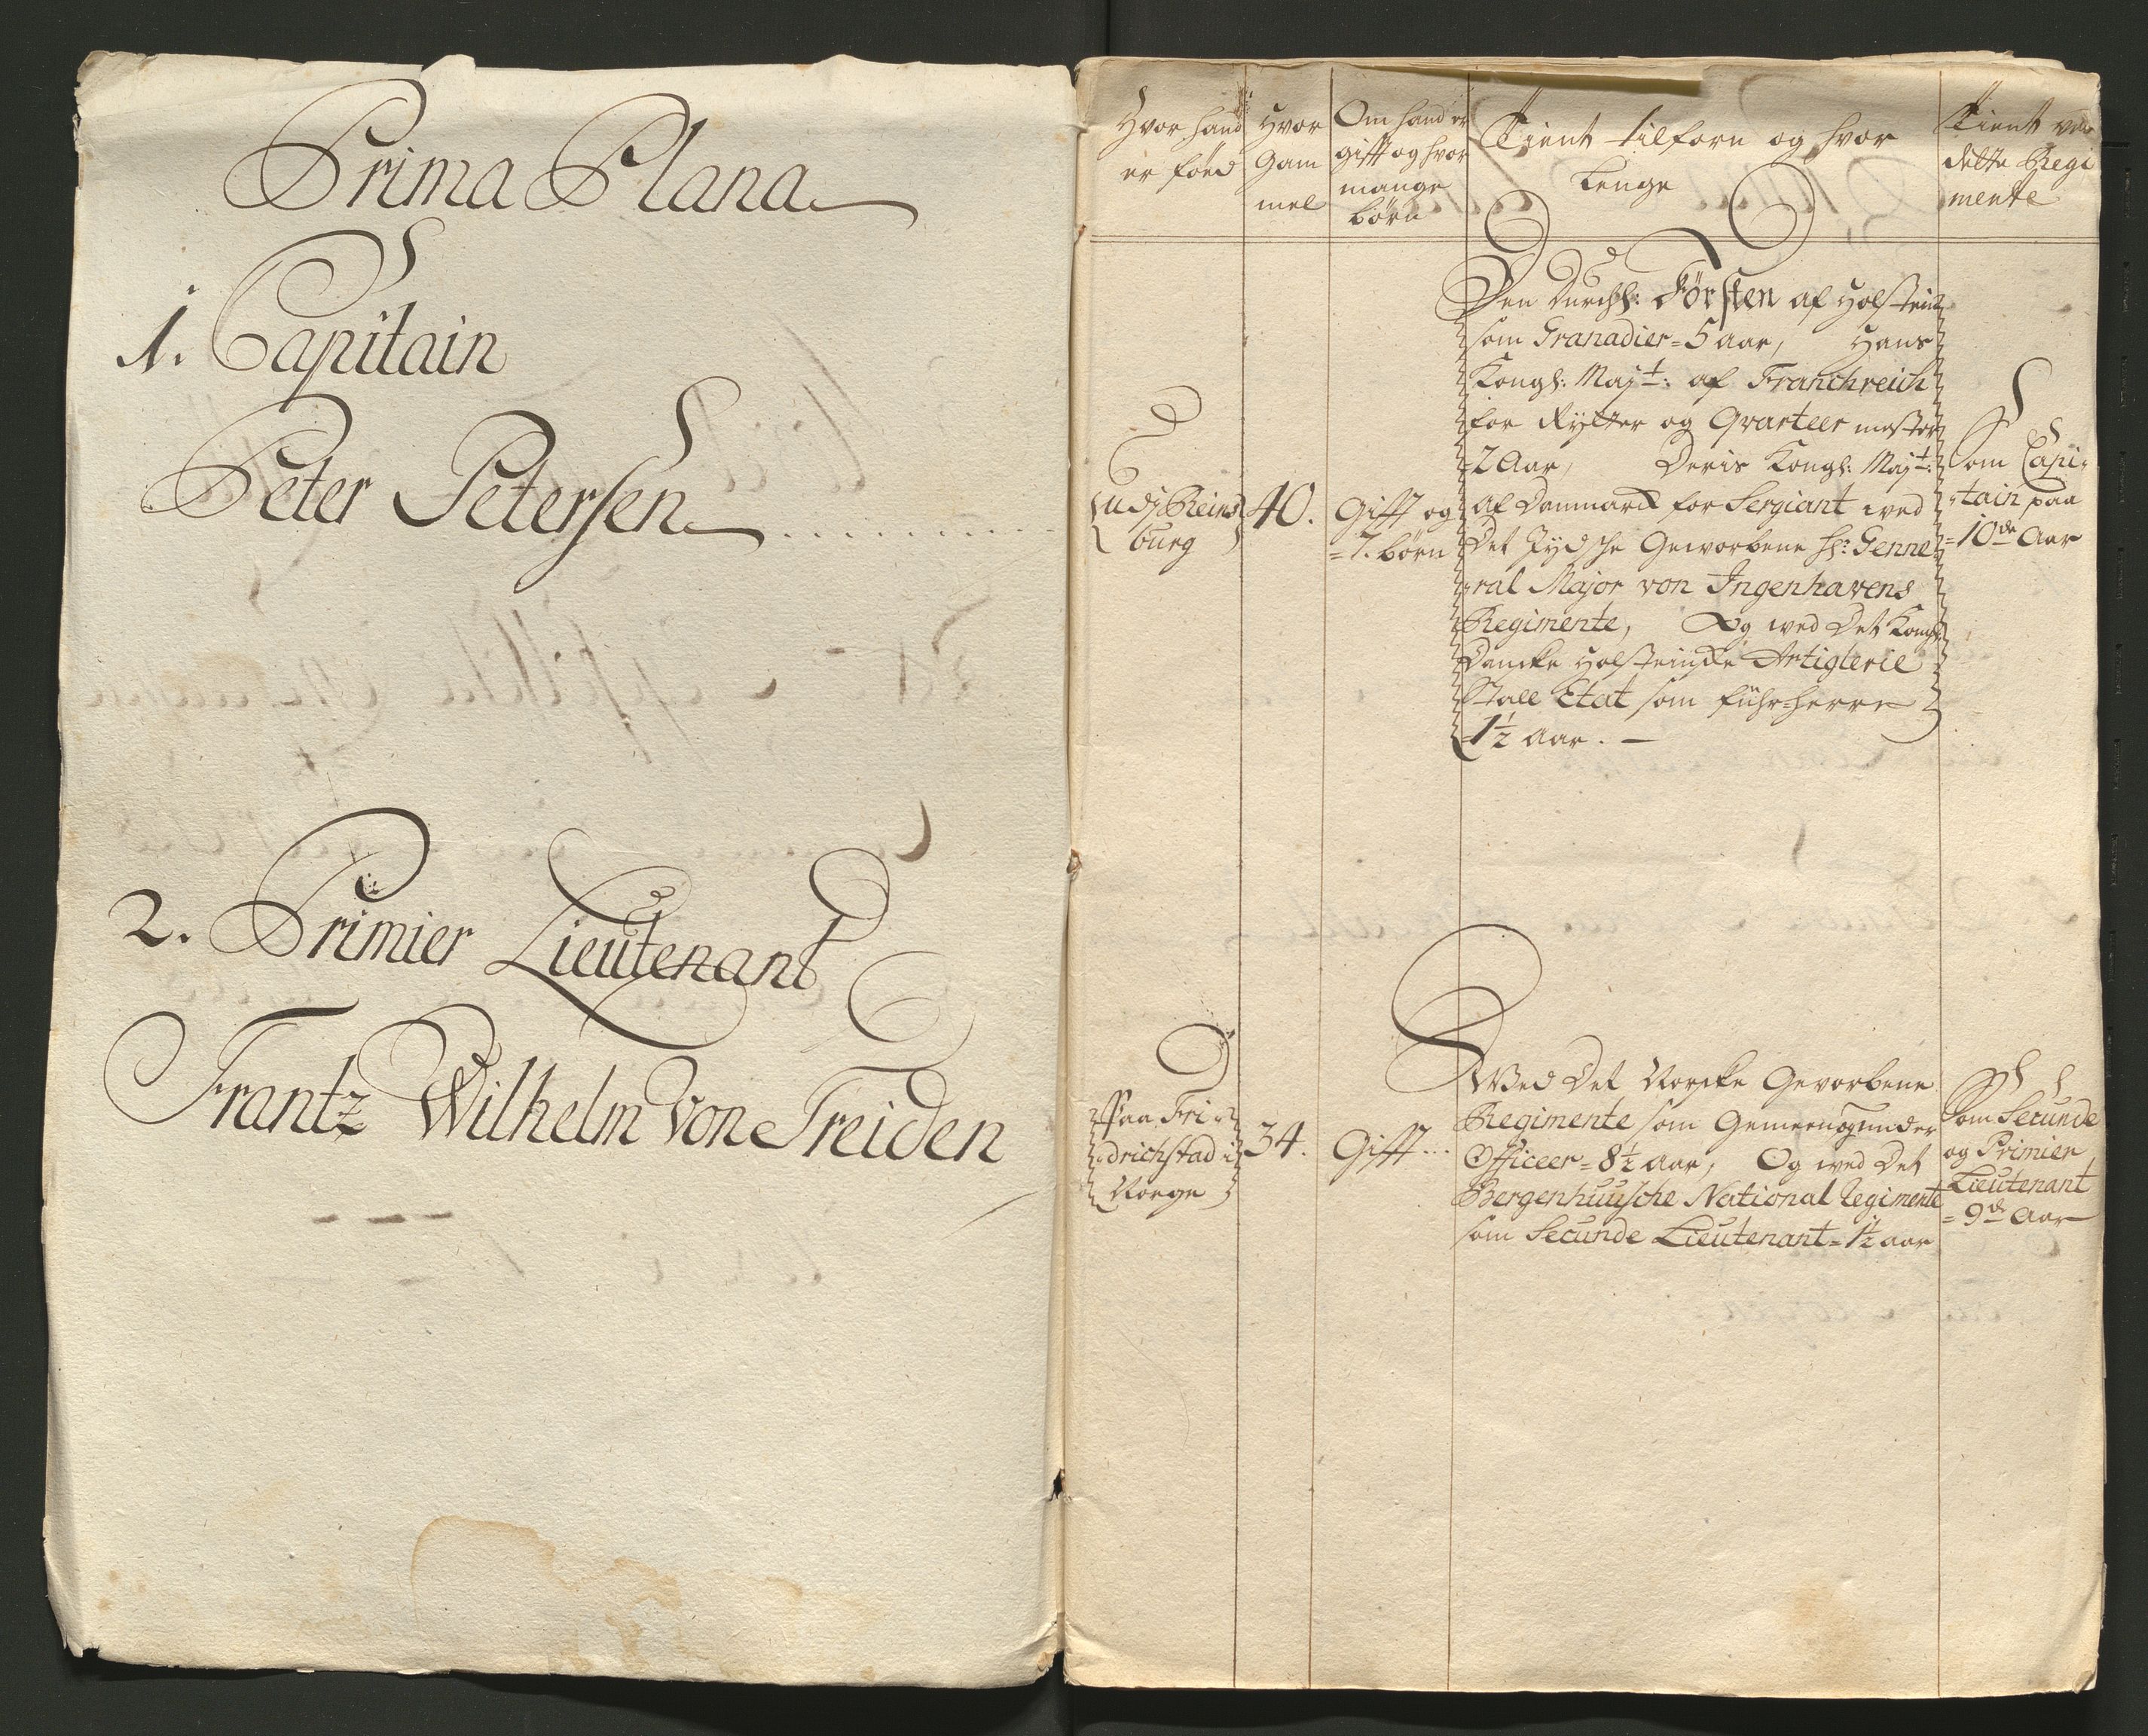 Prima Plana
1. Capitain
Peter Petersen
2. Primier Lieutenant
Frantz Wilhelm von Treiden
Hvor hand
er föed
Hvor
Gam
mel
Om hand er
gifft og hvor
mange
börn
Tient tilforn og hvor
lenge
Tient ved
dette Regi
mente
Udj Reins
burg
40.
Gifft og
=7. börn
Den Durchl: Försten af Holstein
som Granadier=5 aar, Hans
Kongl: Majt: af Franchreich
for Rytter og Qvarteer mester
=2 Aar, Deris Kongl: Majt:
af Danmarck for Sergiant wed
Det Jydsche Geworbene Hr: Genne
ral Major von Ingenhavens
Regimente, Og wed Det Kongl:
Dancke Holsteinske Artiglerie
Stall Etat som führ=herre
=1½ aar.
Som Capi=
=tain paa
=10de Aar
Paa Fri=
drichstad i
Norge
34.
Gifft...
Wed Det Norske Gevorbene
Regimente som Gemeen og under
Officeer=8½ aar, Og wed Det
Bergenhuusche National Regimente
som Secunde Lieutenant=1½ aar
Som Secunde
og Primier
Lieutenant
=9de Aar